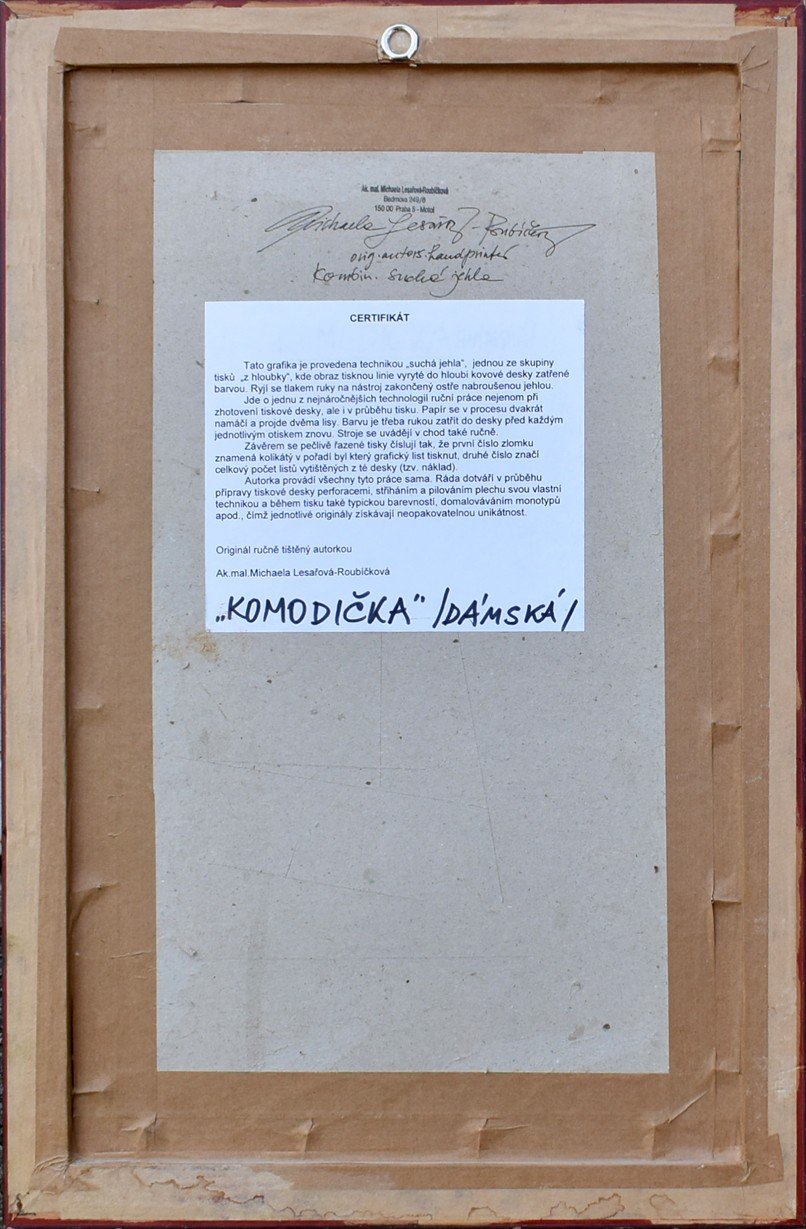 Ak. mal. Michaela Lesařová-Roubíčková
Bedrnova 249/8
150 00 Praha 5 - Motol
Michaela Lesařová-Roubíčková
orig. autors. handprinted
Kombin. suchá jehla
CERTIFIKÁT
Tato grafika je provedena technikou „suchá jehla", jednou ze skupiny
tisků „z hloubky", kde obraz tisknou linie vyryté do hloubi kovové desky zatřené
barvou. Ryjí se tlakem ruky na nástroj zakončený ostře nabroušenou jehlou.
Jde o jednu z nejnáročnějších technologií ruční práce nejenom při
zhotovení tiskové desky, ale i v průběhu tisku. Papír se v procesu dvakrát
namáčí a projde dvěma lisy. Barvu je třeba rukou zatřít do desky před každým
jednotlivým otiskem znovu. Stroje se uvádějí v chod také ručně.
Závěrem se pečlivě řazené tisky číslují tak, že první číslo zlomku
znamená kolikátý v pořadí byl který grafický list tisknut, druhé číslo značí
celkový počet listů vytištěných z té desky (tzv. náklad).
Autorka provádí všechny tyto práce sama. Ráda dotváří v průběhu
přípravy tiskové desky perforacemi, stříháním a pilováním plechu svou vlastní
technikou a během tisku také typickou barevností, domalováváním monotypů
apod., čímž jednotlivé originály získávají neopakovatelnou unikátnost.
Originál ručně tištěný autorkou
Ak.mal.Michaela Lesařová-Roubíčková
„KOMODIČKA" /DÁMSKÁ/